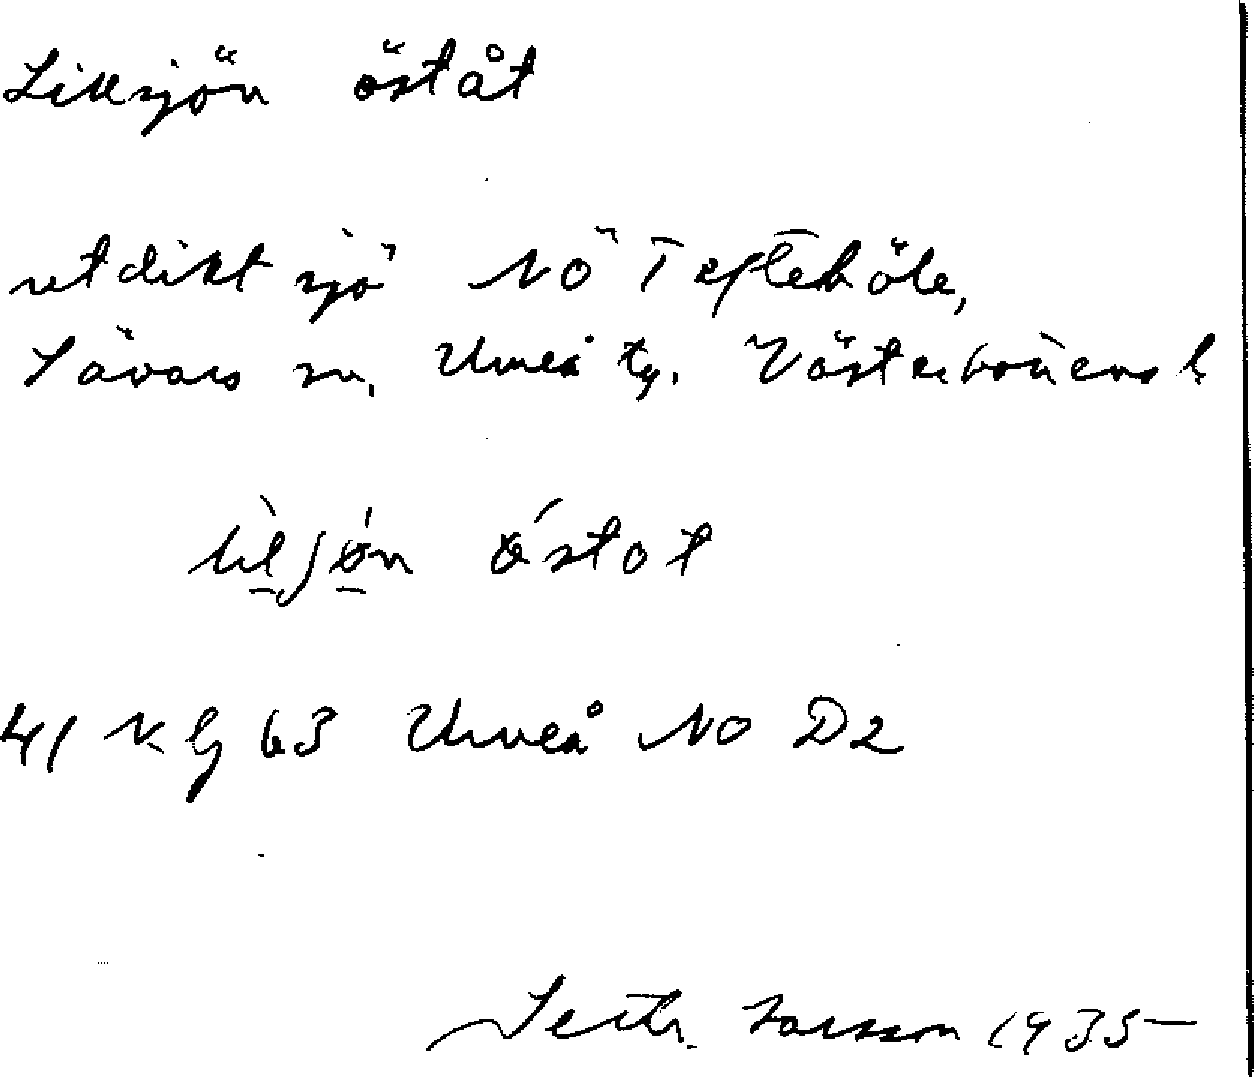 Liksjön öståt
utdikt sjö NÖ Tefteböle,
Sävars sn, Umeå tg. Västerbottens l.
östot
41 K g 63 Umeå NO D2
Seth Larsson 1935